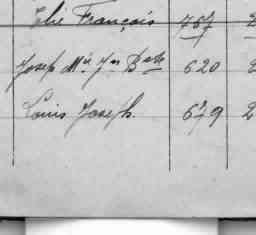 Elie François 757 2
Josep Mie Jn Bste 620 2
Louis Joseph. 679 2